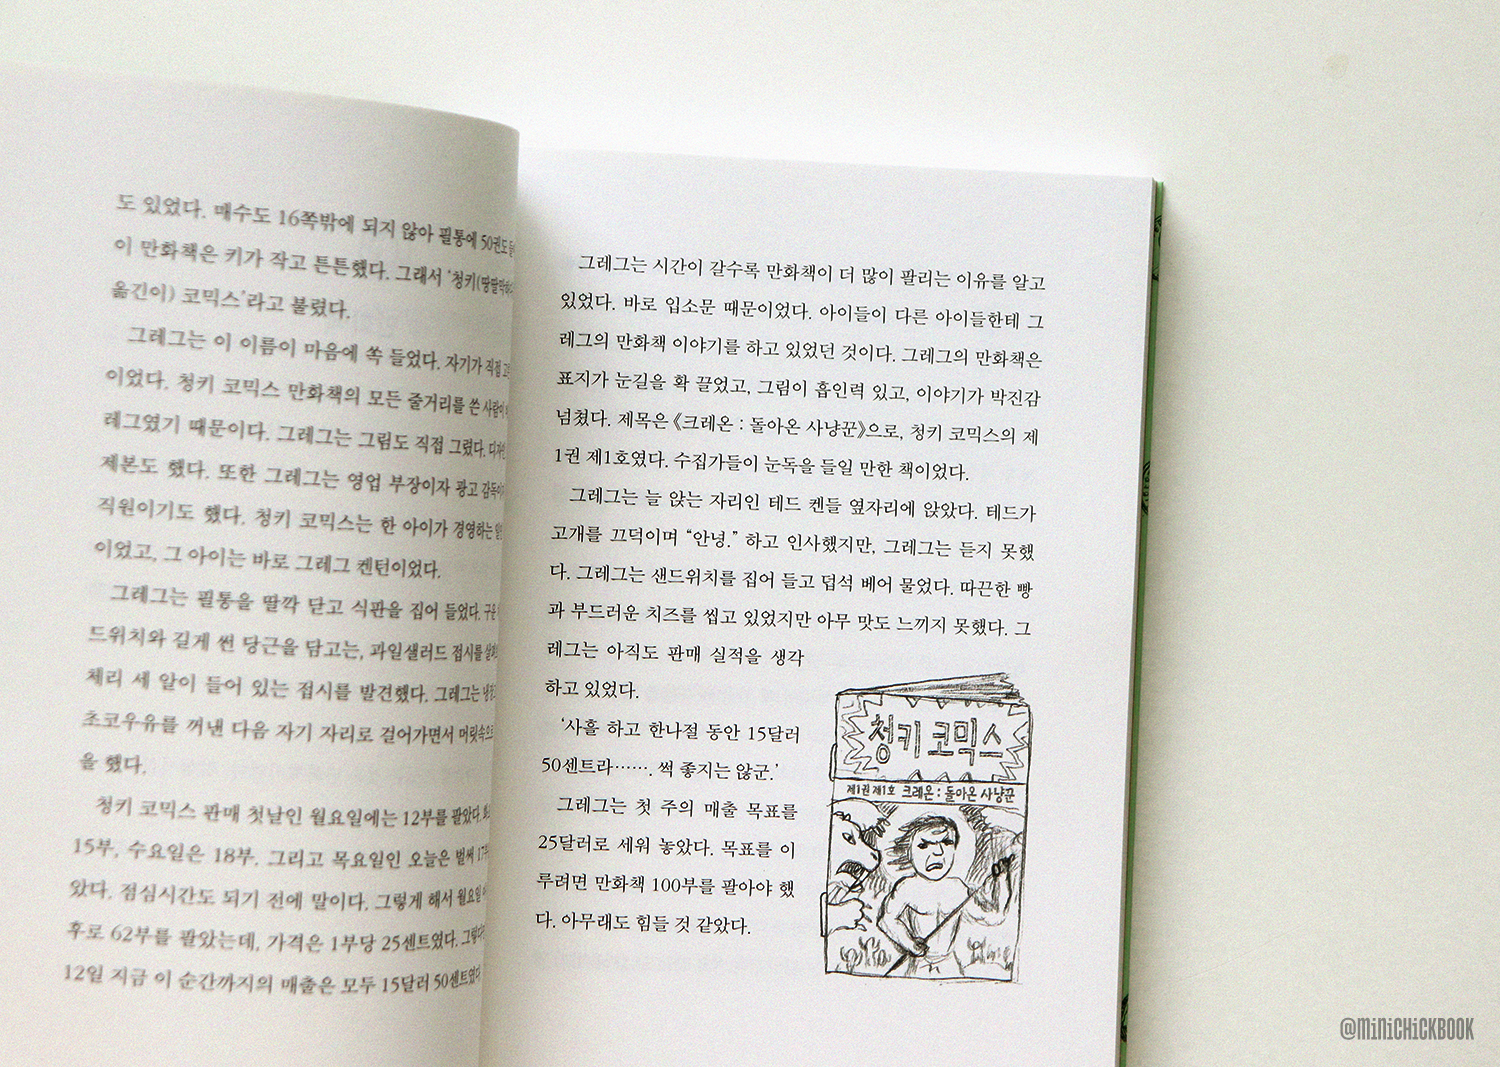 도 있었다. 매수도 16쪽밖에 되지 않아 필통에 50권도
이 만화책은 키가 작고 튼튼했다. 그래서 '청키(땅딸막하다
옮긴이) 코믹스'라고 불렀다.
그레그는 이 이름이 마음에 쏙 들었다. 자기가 직접
이었다. 청키 코믹스 만화책의 모든 줄거리를 쓴 사람이
레그였기 때문이다. 그레그는 그림도 직접 그렸다. 디자인
제본도 했다. 또한 그레그는 영업 부장이자 광고 감독이
직원이기도 했다. 청키 코믹스는 한 아이가 경영하는
이었고, 그 아이는 바로 그레그 켄턴이었다.
그레그는 필통을 딸깍 닫고 식판을 집어 들었다. 구운
드위치와 길게 썬 당근을 담고는, 과일샐러드 접시를
체리 세 알이 들어 있는 접시를 발견했다. 그레그는
초코우유를 꺼낸 다음 자기 자리로 걸어가면서 머릿속으로
을 했다.
청키 코믹스 판매 첫날인 월요일에는 12부를 팔았다.
15부, 수요일은 18부. 그리고 목요일인 오늘은 벌써 17부
았다. 점심시간도 되기 전에 말이다. 그렇게 해서 월요일
후로 62부를 팔았는데, 가격은 1부당 25센트였다.
12일 지금 이 순간까지의 매출은 모두 15달러 50센트였다
그레그는 시간이 갈수록 만화책이 더 많이 팔리는 이유를 알고
있었다. 바로 입소문 때문이었다. 아이들이 다른 아이들한테 그
레그의 만화책 이야기를 하고 있었던 것이다. 그레그의 만화책은
표지가 눈길을 확 끌었고, 그림이 흡인력 있고, 이야기가 박진감
넘쳤다. 제목은 《크레온 : 돌아온 사냥꾼》으로, 청키 코믹스의 제
1권 제1호였다. 수집가들이 눈독을 들일 만한 책이었다.
그레그는 늘 앉는 자리인 테드 켄들 옆자리에 앉았다. 테드가
고개를 끄덕이며 "안녕." 하고 인사했지만, 그레그는 듣지 못했
다. 그레그는 샌드위치를 집어 들고 덥석 베어 물었다. 따끈한 빵
과 부드러운 치즈를 씹고 있었지만 아무 맛도 느끼지 못했다. 그
레그는 아직도 판매 실적을 생각
하고 있었다.
'사흘 하고 한나절 동안 15달러
50센트라……. 썩 좋지는 않군.'
그레그는 첫 주의 매출 목표를
25달러로 세워 놓았다. 목표를 이
루려면 만화책 100부를 팔아야 했
다. 아무래도 힘들 것 같았다.
청키 코믹스
제1권 제1호 크레온 : 돌아온 사냥꾼
@MiNiCHiCKBOOK